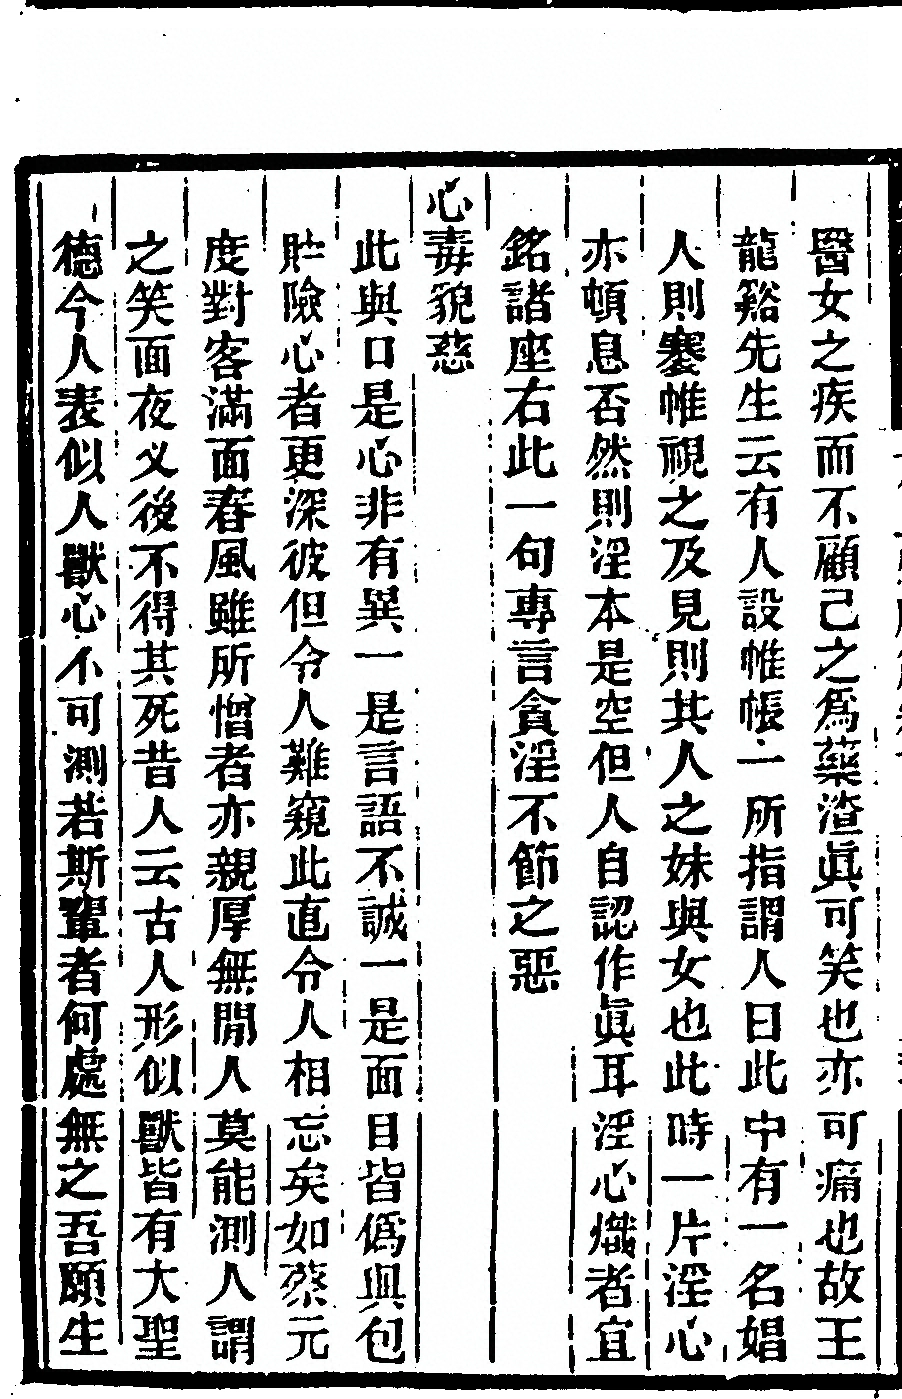 醫女之疾而不顧己之爲藥渣眞可笑也亦可痛也故王
龍谿先生云有人設帷帳一所指謂人曰此中有一名娼
人則褰帷視之及見則其人之妹與女也此時一片淫心
亦頓息否然則淫本是空但人自認作眞耳淫心熾者宜
銘諸座右此一句專言貪淫不節之惡
心毒貌慈
此與口是心非有異一是言語不誠一是面目皆僞與包
貯險心者更深彼但令人難窺此直令人相忘矣如蔡元
度對客滿面春風雖所憎者亦親厚無閒人莫能測人謂
之笑面夜义後不得其死昔人云古人形似獸皆有大聖
德今人表似人獸心不可測若斯輩者何處無之吾願生